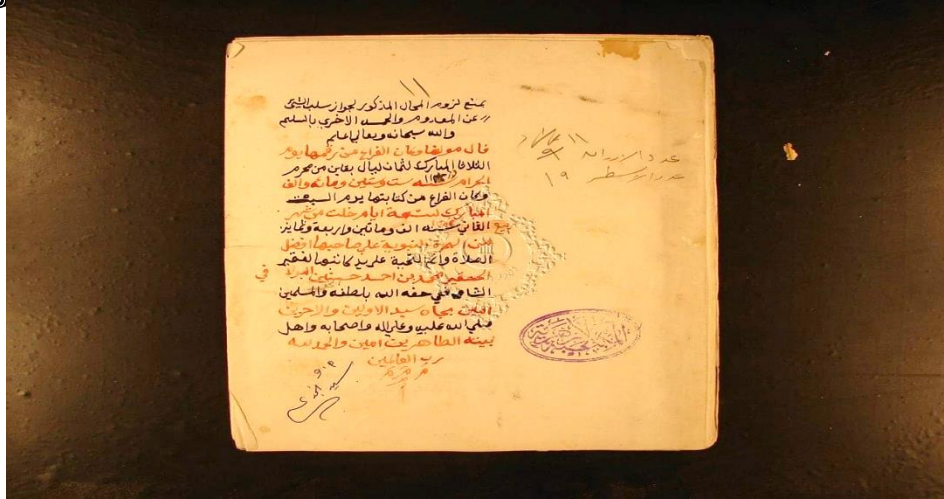 يمتنع لزوم المحال المذكور لجواز سلب الشئ
عن المعدوم والحمل الاخرى بالتسليم
والله سبحانه وتعالى اعلم
قال مولفها وكان الفراغ من رقمها يوم
الثلاثا المبارك لثمان ليال بقين من محرم
الحرام سنة ست وستين ومائه والف
وكان الفراغ من كتابتها يوم السبت
المبارك لستة ايام خلت من شهر
ربيع الثاني سنة الف ومائتين واربعة وثمانين
من الهجرة النبوية على صاحبها افضل
الصلاة واتم التحية على يد كاتبها الفقير
الحقير محمد بن احمد حسنين
الشافعي حفه الله بلطفه والمسلمين
امين بجاه سيد الاولين والاخرين
صلى الله عليه وعلى اله واصحابه واهل
بيته الطاهرين امين والحمد لله
رب العالمين
م م م
عدد الاوراق ١١
عدد الاسطر ١٩